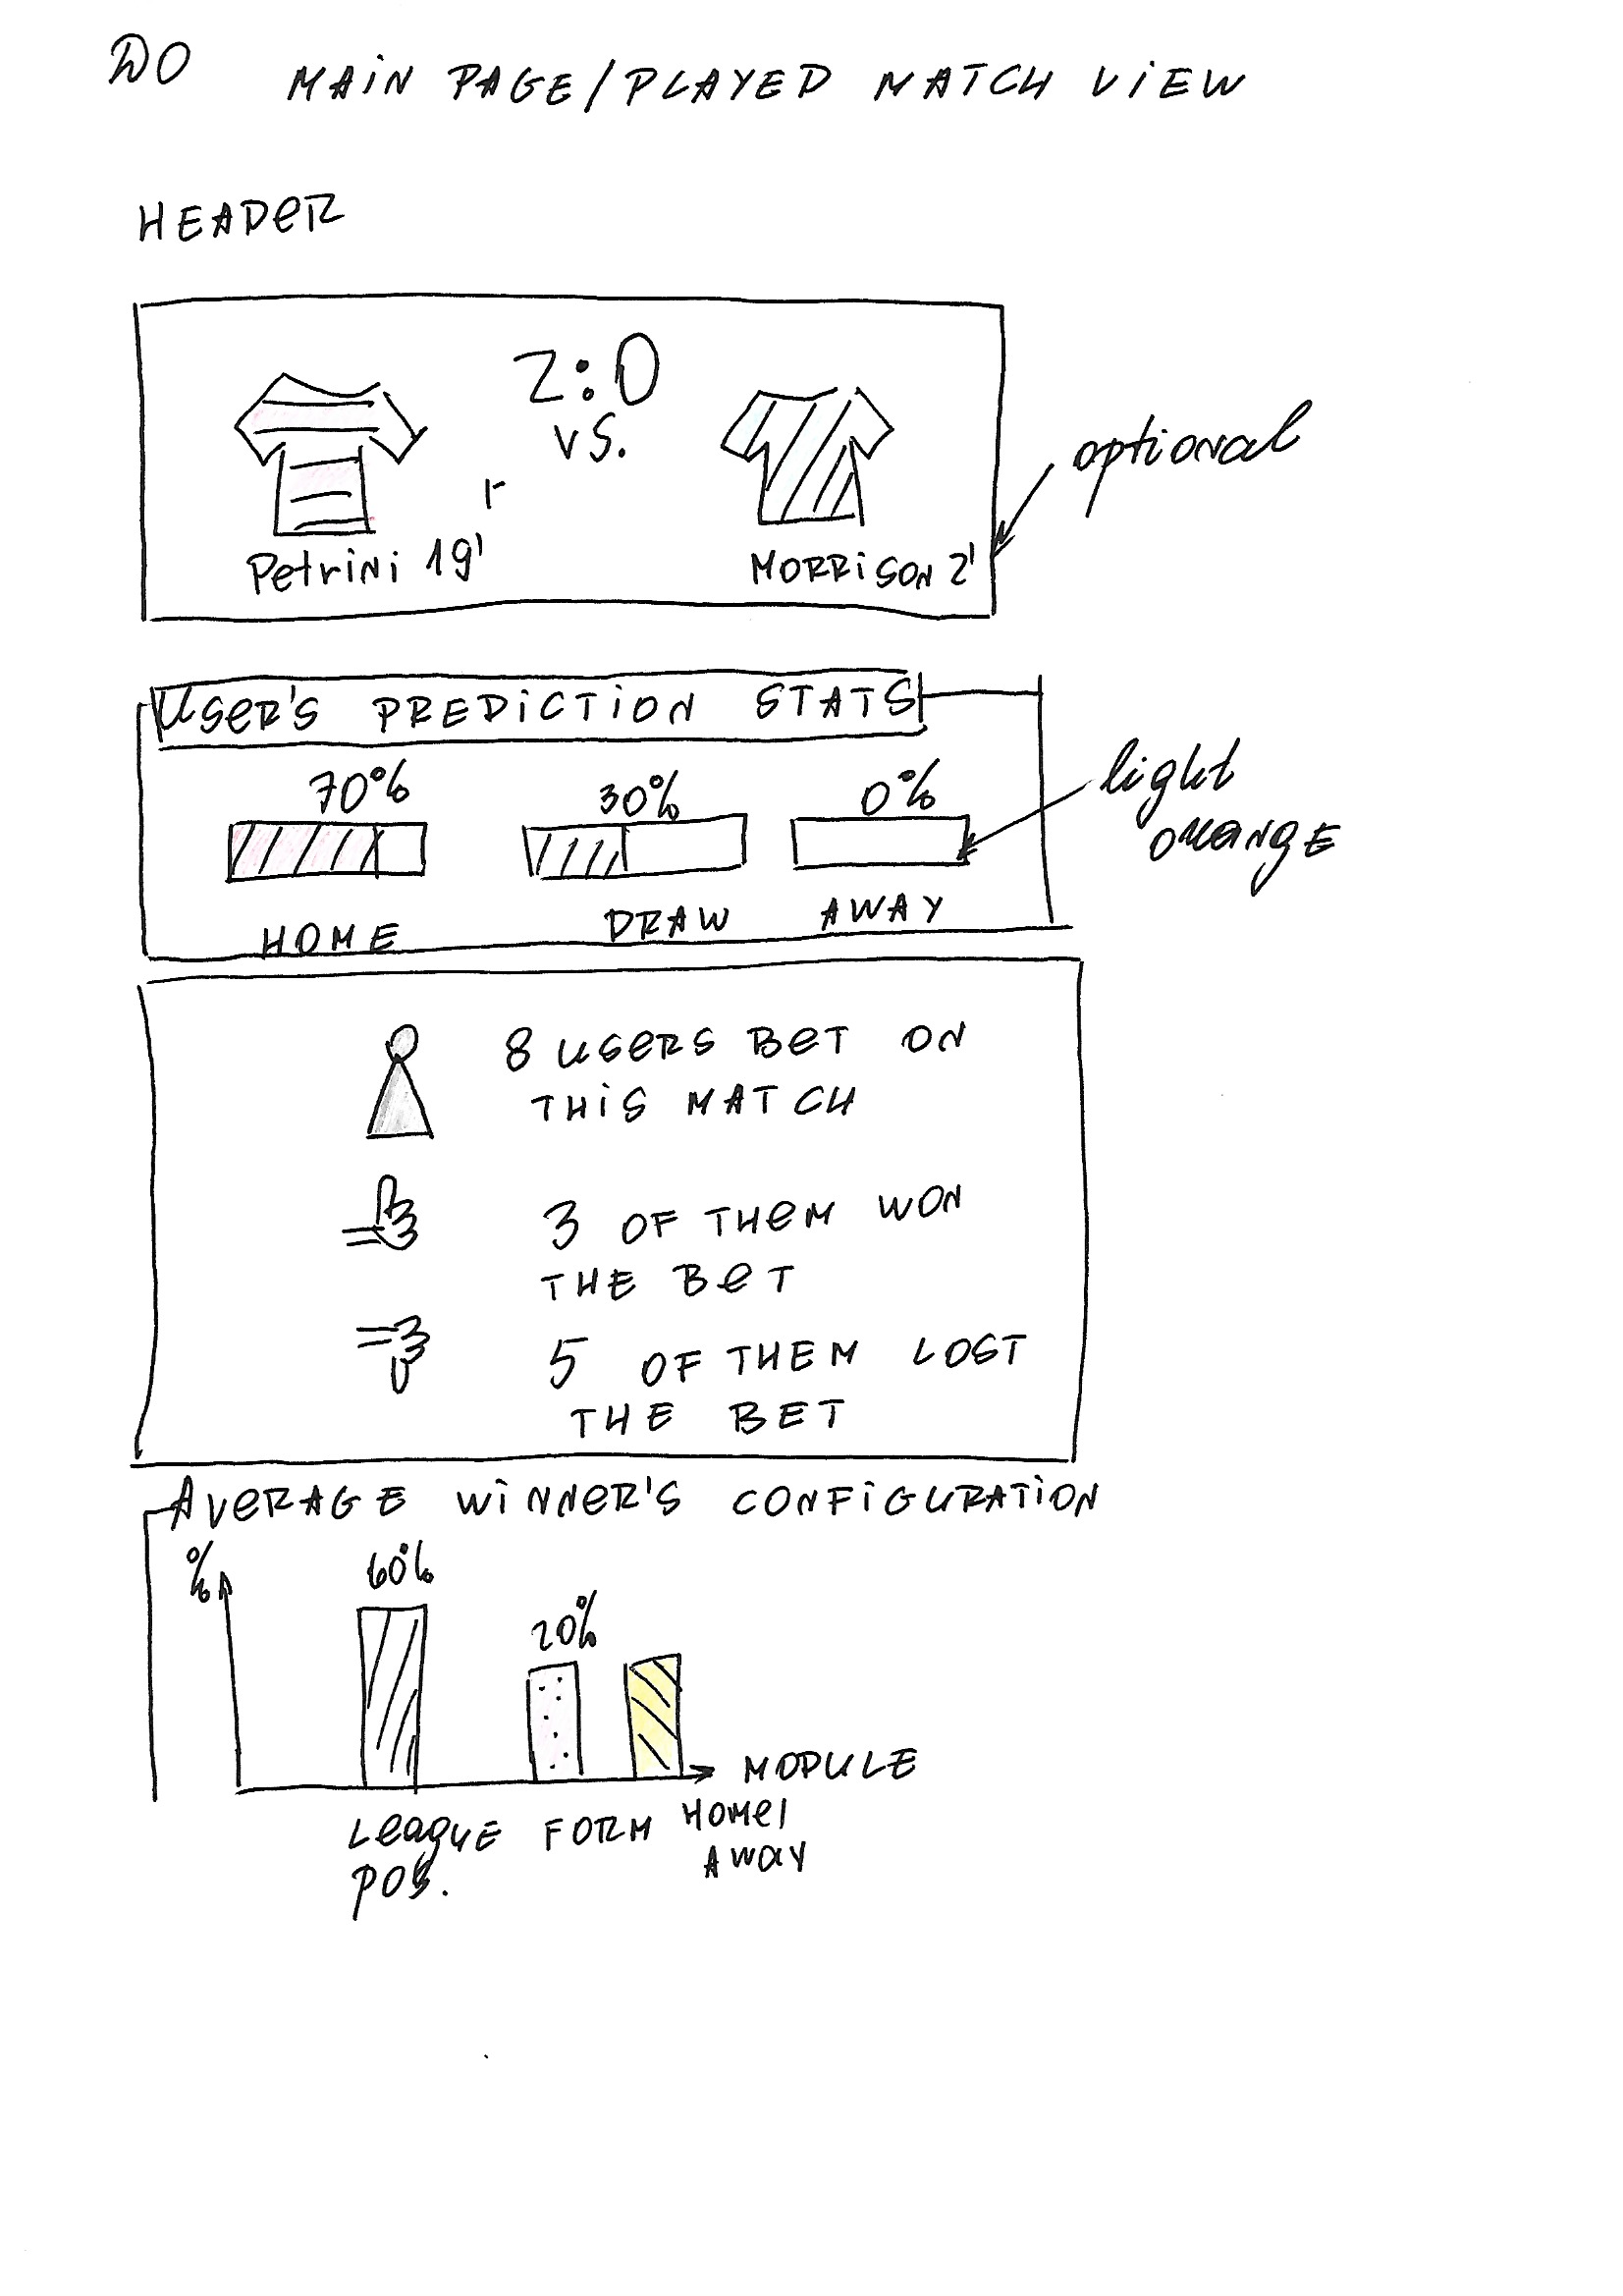 DO
MAIN PAGE/PLAYED MATCH VIEW
HEADER
2:0
vs.
Petrini 19'
MORRISON 2'
optional
USER'S PREDICTION STATS
70% 30% 0%
light
orange
HOME DRAW AWAY
8 USERS BET ON
THIS MATCH
3 OF THEM WON
THE BET
5 OF THEM LOST
THE BET
AVERAGE WINNER'S CONFIGURATION
%
60%
20%
MODULE
LEAGUE FORM HOME/
POS. AWAY